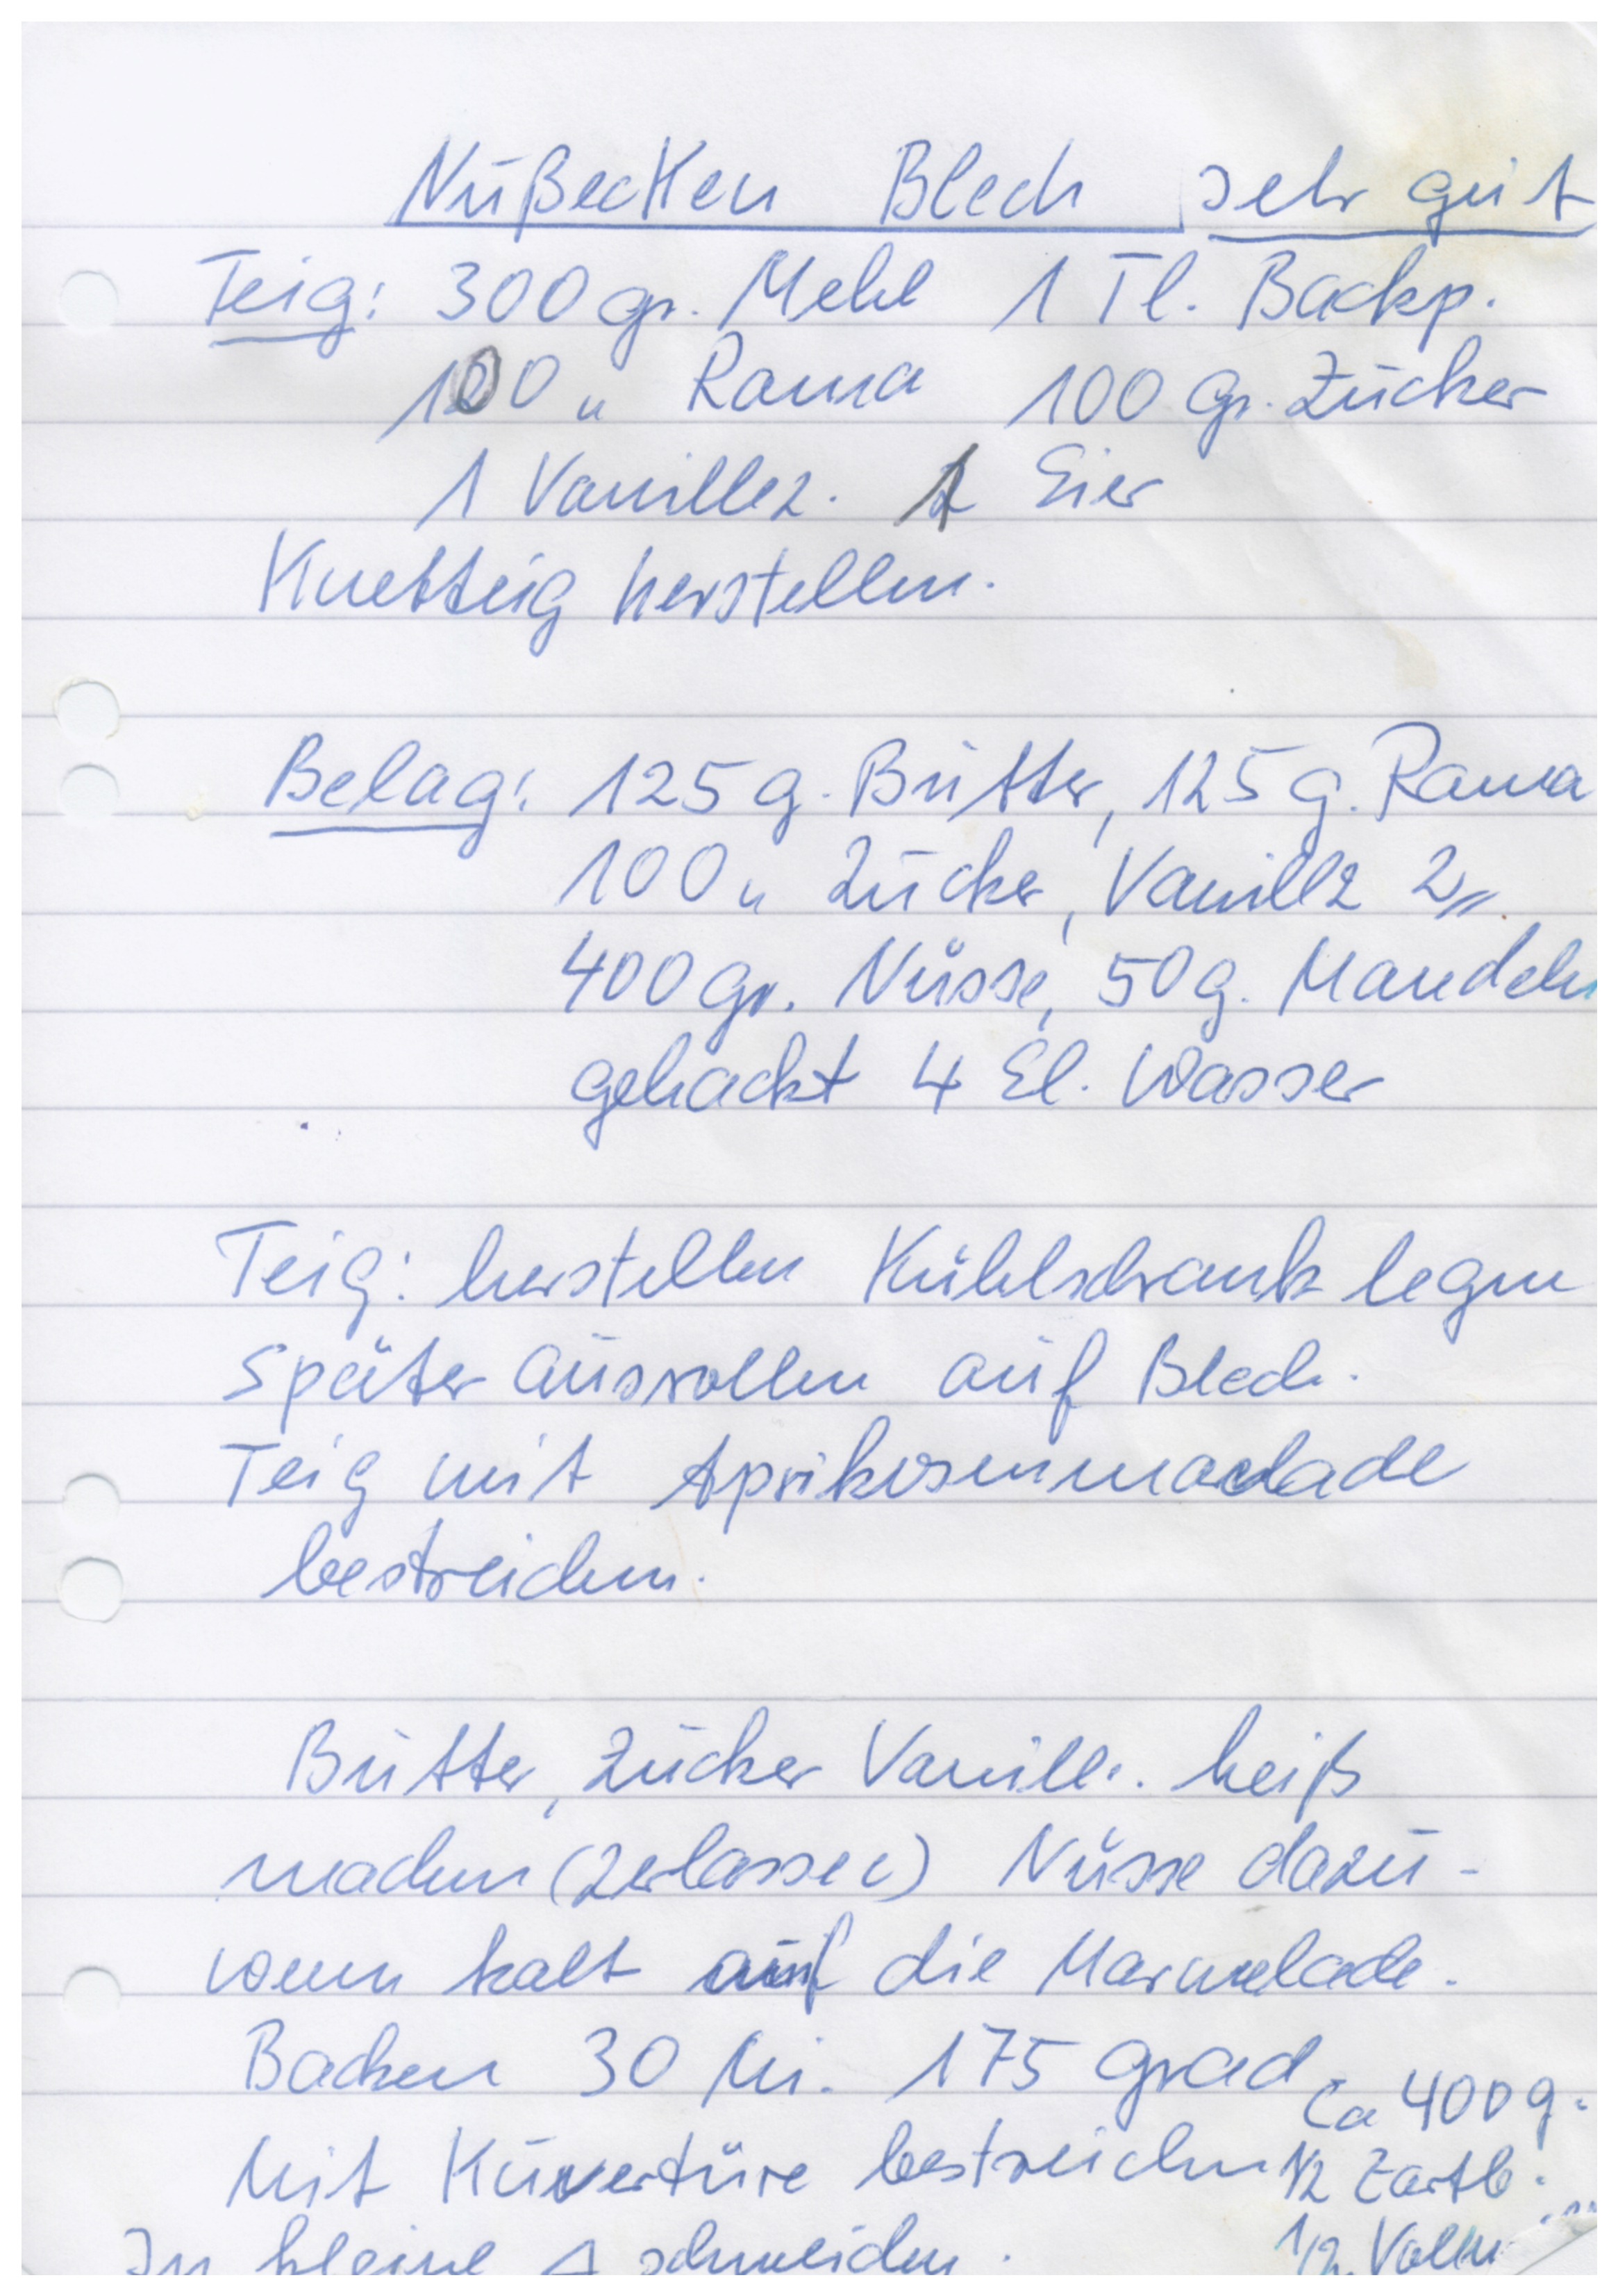 Nußecken Blech sehr gut
Teig: 300 gr. Mehl 1 Tl. Backp.
100 " Rama 100 gr. Zucker
1 Vanillez. 1 Eier
Knetteig herstellen.
Belag: 125 g. Butter, 125 g. Rama
100 " Zucker, Vanillz 2 "
400 gr. Nüsse, 50 g. Mandeln
gehackt 4 El. Wasser
Teig: herstellen Kühlschrank legen
später ausrollen auf Blech.
Teig mit Aprikosenmarlade
bestreichen.
Butter, Zucker Vanill. heiß
machen (zerlassen) Nüsse dazu -
wenn kalt auf die Marmelade.
Backen 30 Mi. 175 grad
Ca 400 g.
Mit Kuvertüre bestreichen 1/2 Zartb.
In kleine △ schneiden. 1/2 Vollm